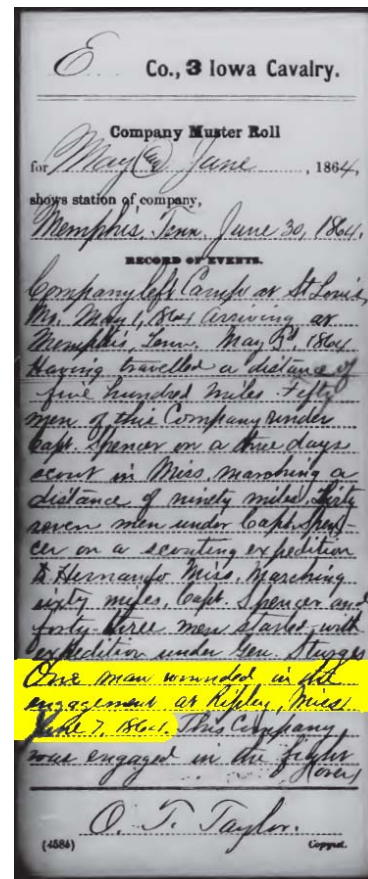 E Co., 3 Iowa Cavalry.
Company Muster Roll
for May & June, 1864,
shows station of company,
Memphis, Tenn. June 30, 1864.
RECORD OF EVENTS.
Company left Camp at St Louis,
Mo. May 1, 1864 arriving at
Memphis, Tenn. May 1864
Having travelled a distance of
five hundred miles. Fifty
men of this Company under
Capt. Spencer on a days
scout in Miss, marching a
distance of ninety miles. Thirty
seven men under Capt. Spen-
cer on a scouting expedition
to Hernando Miss, Marching
sixty miles, Capt. Spencer and
forty-three men started with
expedition under Gen. Sturges
One man wounded in the
engagement at Ripley, Miss
June 7, 1864. This Company
was engaged in the fight
(over)
O. T. Taylor.
(4584) Copyist.